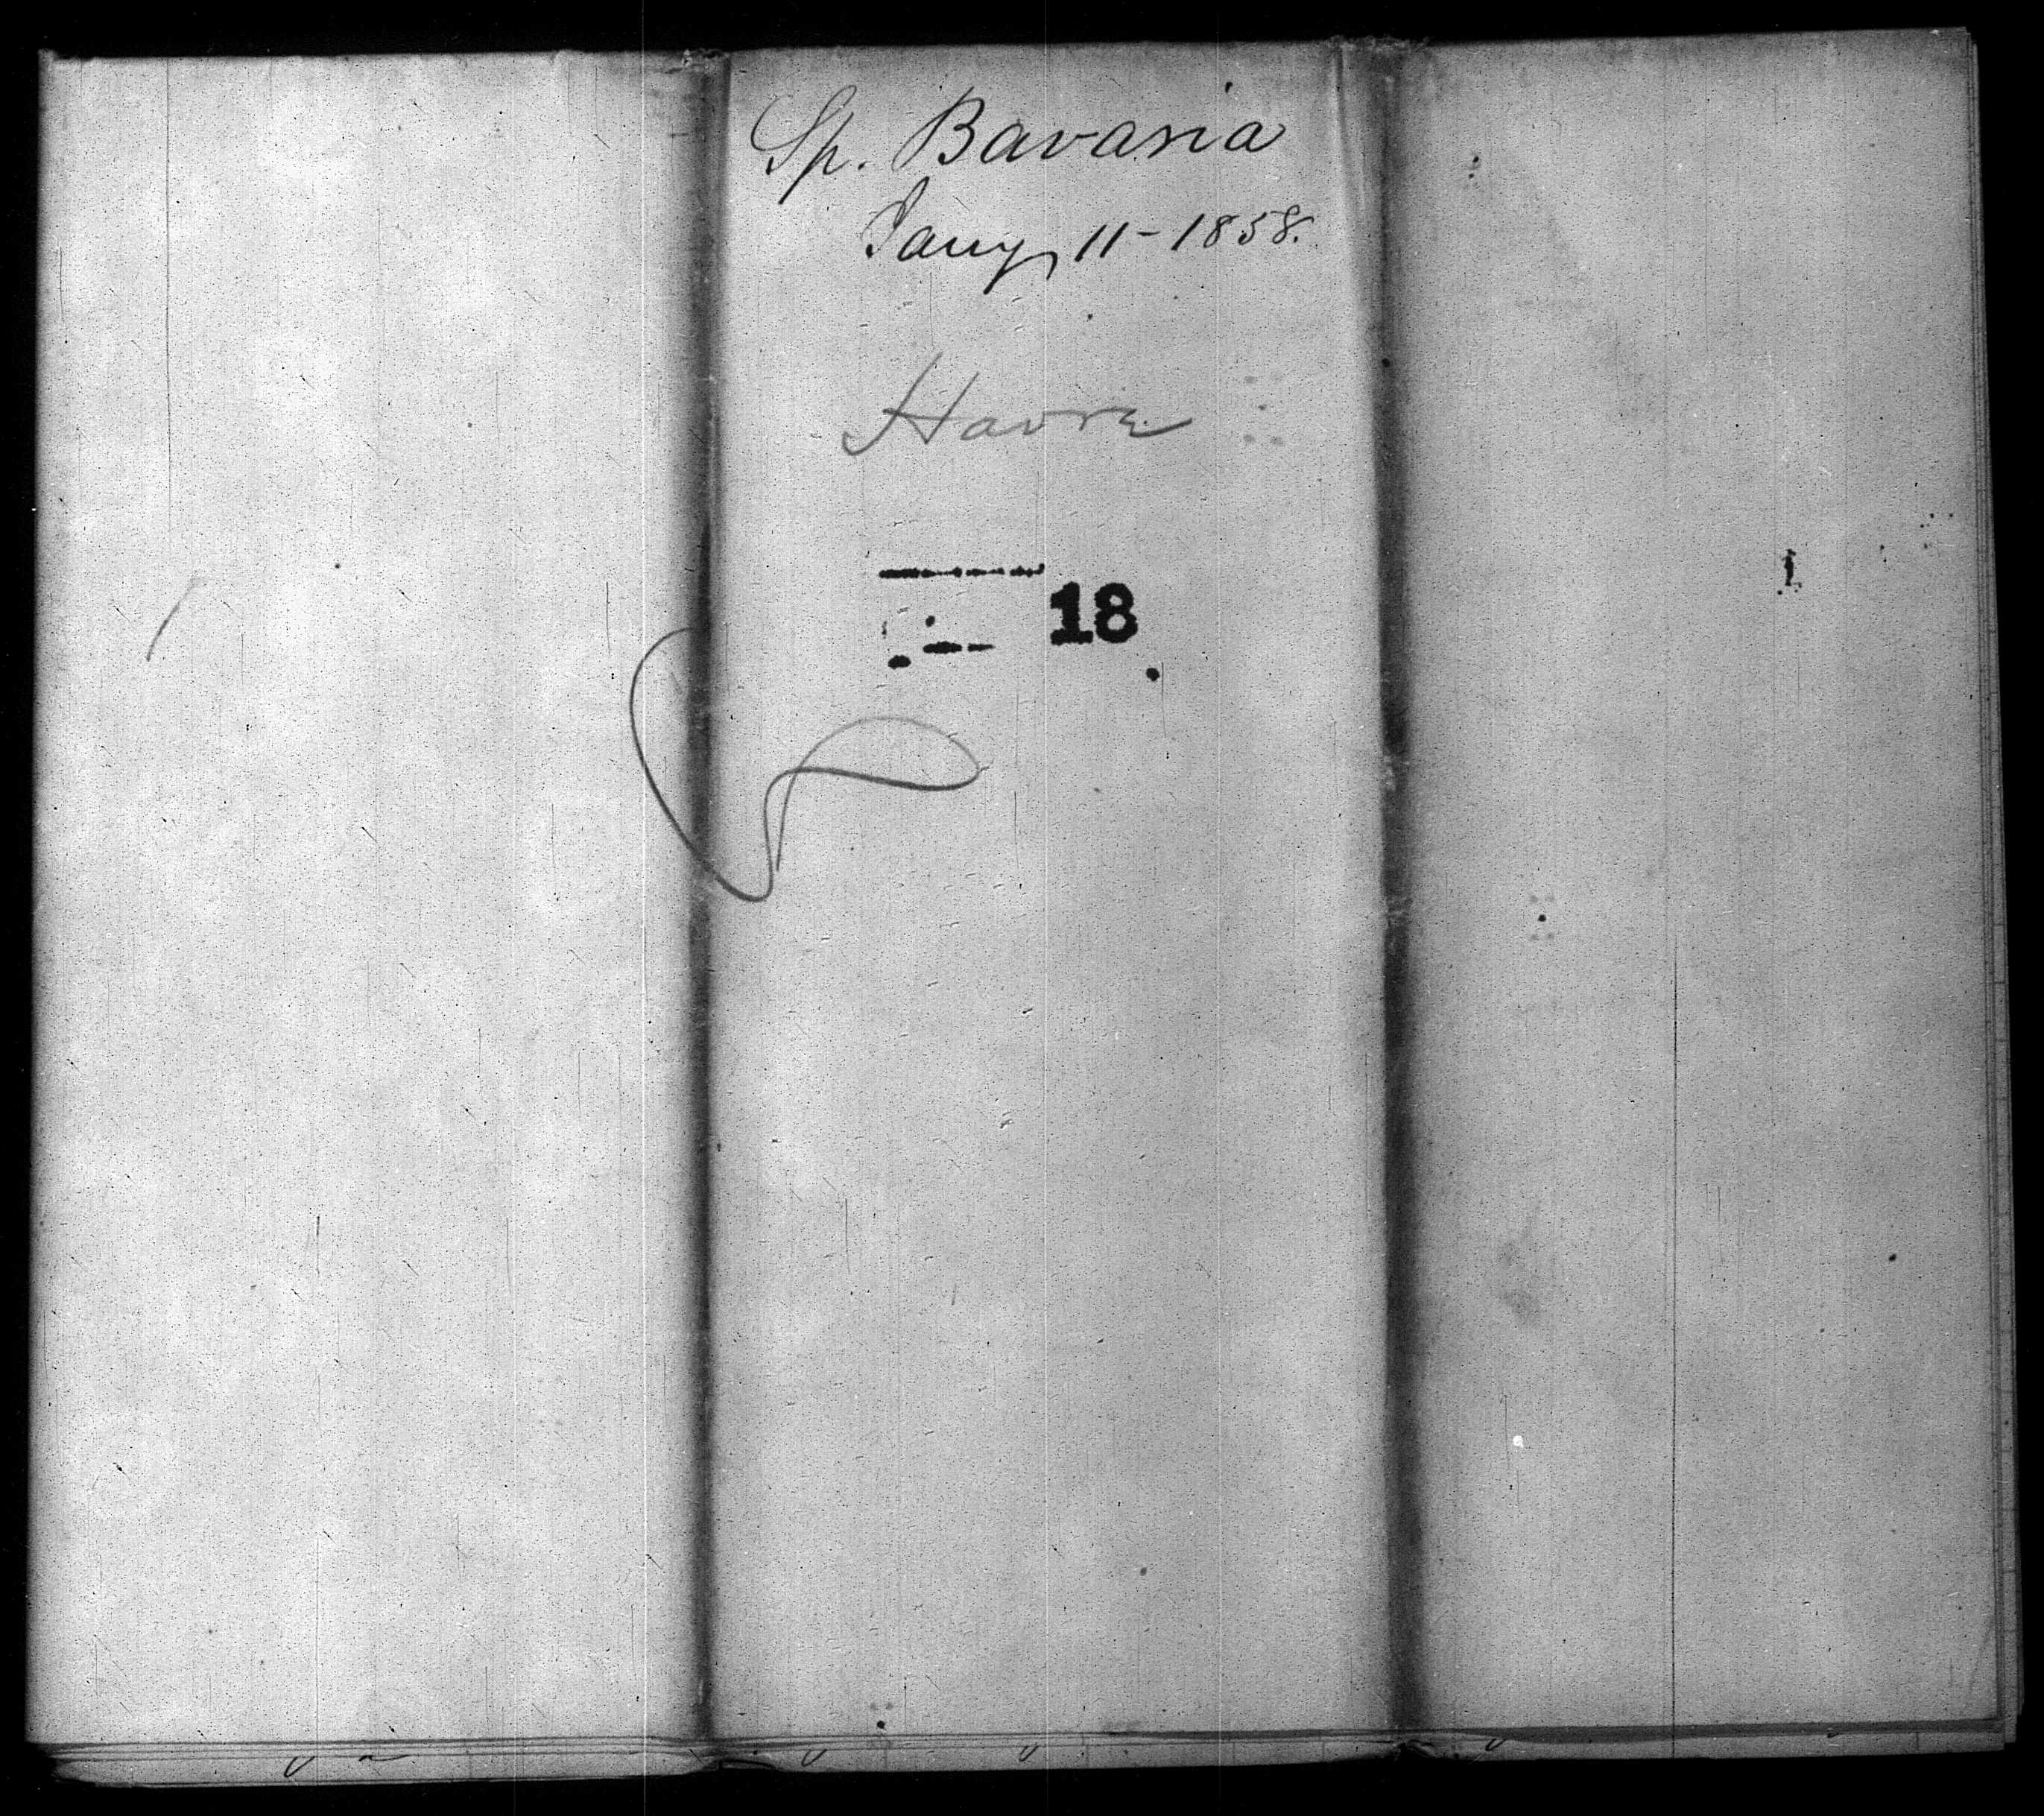 Sp. Bavaria
Jany 11 - 1858.
Havre
18